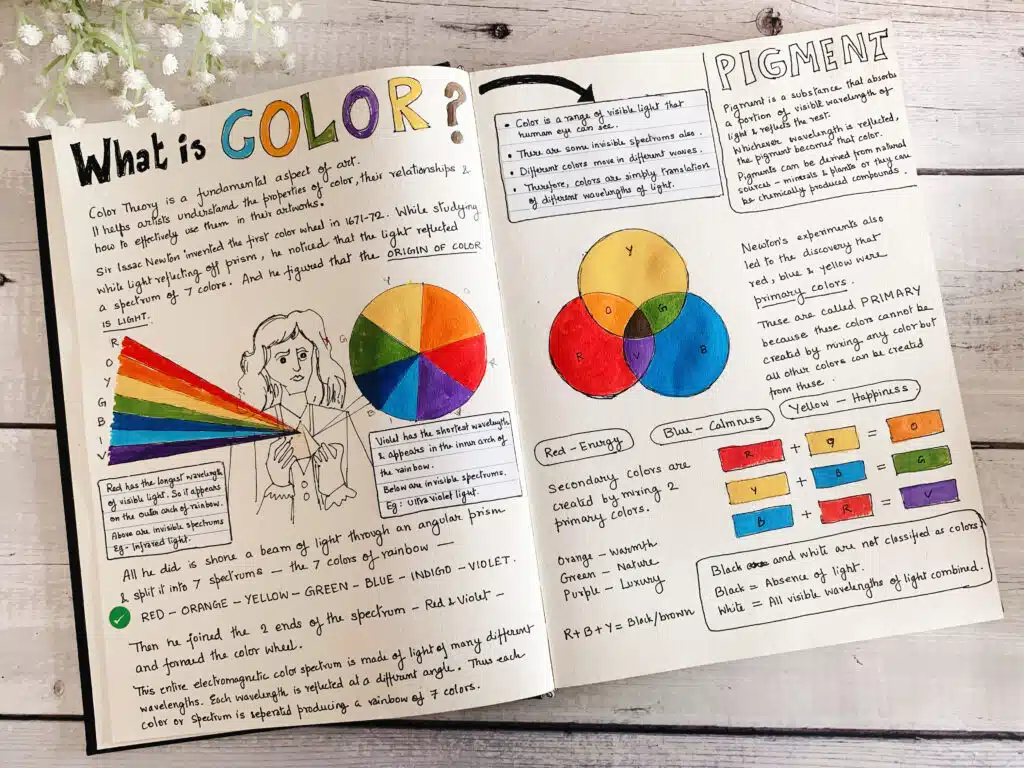 What is COLOR?
Color Theory is a fundamental aspect of art.
It helps artists understand the properties of color, their relationships &
how to effectively use them in their artworks.
Sir Issac Newton invented the first color wheel in 1671-72. While studying
white light reflecting off prism, he noticed that the light reflected
a spectrum of 7 colors. And he figured that the ORIGIN OF COLOR
IS LIGHT.
R
O
Y
G
B
I
V
Y
O
G
R
B
I
V
Red has the longest wavelength
of visible light. So it appears
on the outer arch of rainbow.
Above are invisible spectrums
Eg:- Infrared light.
Violet has the shortest wavelength
& appears in the inner arch of
the rainbow.
Below are invisible spectrums.
Eg: Ultra violet light.
All he did is shone a beam of light through an angular prism
& split it into 7 spectrums — the 7 colors of rainbow —
RED - ORANGE - YELLOW - GREEN - BLUE - INDIGO - VIOLET.
Then he joined the 2 ends of the spectrum - Red & Violet -
and formed the color wheel.
This entire electromagnetic color spectrum is made of light of many different
wavelengths. Each wavelength is reflected at a different angle. Thus each
color or spectrum is seperated producing a rainbow of 7 colors.
• Color is a range of visible light that
human eye can see.
• There are some invisible spectrums also.
• Different colors move in different waves.
• Therefore, colors are simply translation
of different wavelengths of light.
PIGMENT
Pigment is a substance that absorbs
a portion of visible wavelength of
light & reflects the rest.
Whichever wavelength is reflected,
the pigment becomes that color.
Pigments can be derived from natural
sources - minerals & plants or they can
be chemically produced compounds.
Y
O
G
R
V
B
Newton's experiments also
led to the discovery that
red, blue & yellow were
primary colors.
These are called PRIMARY
because these colors cannot be
created by mixing any color but
all other colors can be created
from these.
Red - Energy
Blue - Calmness
Yellow - Happiness
Secondary colors are
created by mixing 2
primary colors.
Orange - Warmth
Green - Nature
Purple - Luxury
R+B+Y = Black/brown
R + Y = O
Y + B = G
B + R = V
Black and white are not classified as colors
Black = Absence of light.
White = All visible wavelengths of light combined.